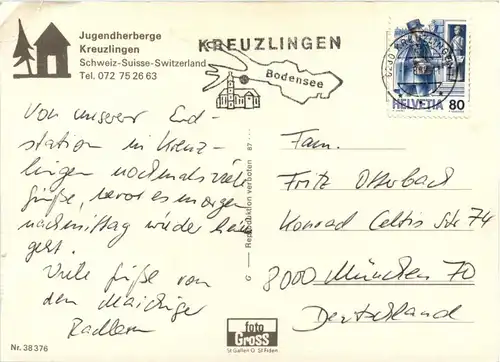 Jugendherberge
Kreuzlingen
Schweiz-Suisse-Switzerland
Tel. 072 75 26 63
KREUZLINGEN
Bodensee
HELVETIA 80
Von unserer End-
station in Kreuz-
lingen nochmals viele
Grüße, bevor es morgen
nachmittag wieder heim
geht.
Viele Grüße von
den
Radlern
Fam.
Fritz Otterbach
Konrad Celtis Str 74
8000 München 70
Deutschland
G — Reproduktion verboten 87
foto
Gross
St Gallen O St Fiden
Nr. 38376